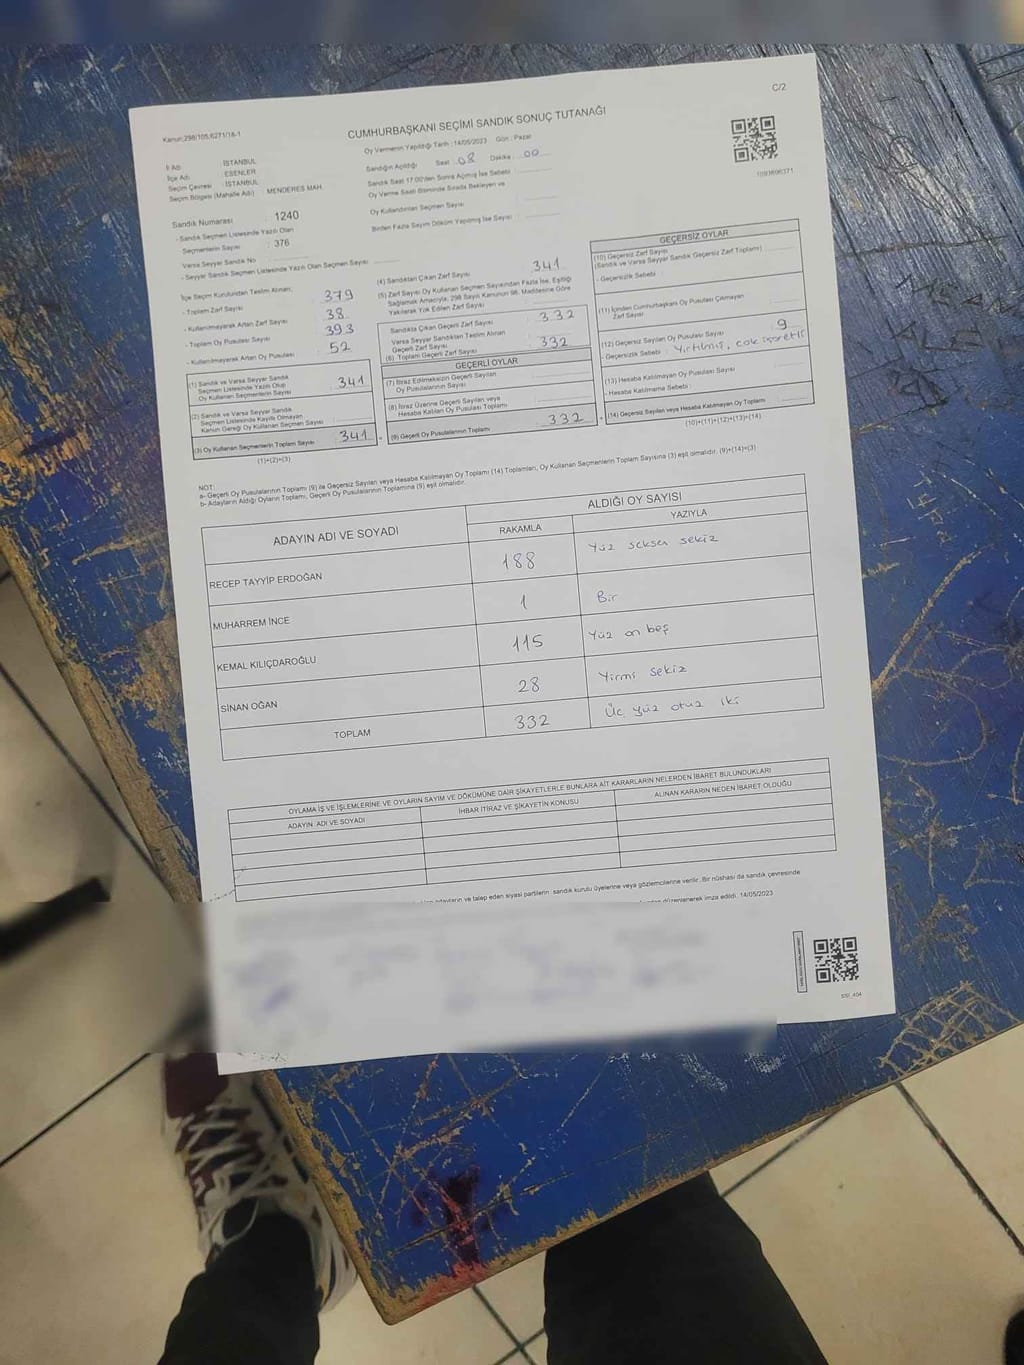 C/2
Kanun:298/105,6271/18-1
CUMHURBAŞKANI SEÇİMİ SANDIK SONUÇ TUTANAĞI
Oy Vermenin Yapıldığı Tarih : 14/05/2023 Gün : Pazar
İl Adı : İSTANBUL
İlçe Adı : ESENLER
Seçim Çevresi : İSTANBUL
Seçim Bölgesi (Mahalle Adı) : MENDERES MAH.
Sandığın Açıldığı Saat : 08 Dakika : 00
Sandık Saat 17:00'den Sonra Açılmış İse Sebebi :
Oy Verme Saati Bitiminde Sırada Bekleyen ve
Oy Kullandırılan Seçmen Sayısı :
Birden Fazla Sayım Döküm Yapılmış İse Sayısı :
1093696371
Sandık Numarası : 1240
- Sandık Seçmen Listesinde Yazılı Olan
Seçmenlerin Sayısı : 376
Varsa Seyyar Sandık No :
- Seyyar Sandık Seçmen Listesinde Yazılı Olan Seçmen Sayısı :
İlçe Seçim Kurulundan Teslim Alınan;
- Toplam Zarf Sayısı : 379
- Kullanılmayarak Artan Zarf Sayısı : 38
- Toplam Oy Pusulası Sayısı : 393
- Kullanılmayarak Artan Oy Pusulası : 52
(1) Sandık ve Varsa Seyyar Sandık
Seçmen Listesinde Yazılı Olup
Oy Kullanan Seçmenlerin Sayısı 341
(2) Sandık ve Varsa Seyyar Sandık
Seçmen Listesinde Kayıtlı Olmayan
Kanun Gereği Oy Kullanan Seçmen Sayısı
(3) Oy Kullanan Seçmenlerin Toplam Sayısı 341
(1)+(2)=(3)
(4) Sandıktan Çıkan Zarf Sayısı 341
(5) Zarf Sayısı Oy Kullanan Seçmen Sayısından Fazla İse, Eşitliği
Sağlamak Amacıyla, 298 Sayılı Kanunun 98. Maddesine Göre
Yakılarak Yok Edilen Zarf Sayısı :
Sandıkta Çıkan Geçerli Zarf Sayısı : 332
Varsa Seyyar Sandıktan Teslim Alınan
Geçerli Zarf Sayısı :
(6) Toplam Geçerli Zarf Sayısı : 332
GEÇERLİ OYLAR
(7) İtiraz Edilmeksizin Geçerli Sayılan
Oy Pusulalarının Sayısı
(8) İtiraz Üzerine Geçerli Sayılan veya
Hesaba Katılan Oy Pusulası Toplamı
(9) Geçerli Oy Pusulalarının Toplamı 332
GEÇERSİZ OYLAR
(10) Geçersiz Zarf Sayısı
(Sandık ve Varsa Seyyar Sandık Geçersiz Zarf Toplamı)
- Geçersizlik Sebebi :
(11) İçinden Cumhurbaşkanı Oy Pusulası Çıkmayan
Zarf Sayısı
(12) Geçersiz Sayılan Oy Pusulası Sayısı 9
- Geçersizlik Sebebi : Yırtılmış, çok işaretli
(13) Hesaba Katılmayan Oy Pusulası Sayısı
- Hesaba Katılmama Sebebi :
(14) Geçersiz Sayılan veya Hesaba Katılmayan Oy Toplamı
(10)+(11)+(12)+(13)=(14)
NOT:
a- Geçerli Oy Pusulalarının Toplamı (9) ile Geçersiz Sayılan veya Hesaba Katılmayan Oy Toplamı (14) Toplamları, Oy Kullanan Seçmenlerin Toplam Sayısına (3) eşit olmalıdır. (9)+(14)=(3)
b- Adayların Aldığı Oyların Toplamı, Geçerli Oy Pusulalarının Toplamına (9) eşit olmalıdır.
ADAYIN ADI VE SOYADI ALDIĞI OY SAYISI
RAKAMLA YAZIYLA
RECEP TAYYİP ERDOĞAN 188 Yüz seksen sekiz
MUHARREM İNCE 1 Bir
KEMAL KILIÇDAROĞLU 115 Yüz on beş
SİNAN OĞAN 28 Yirmi sekiz
TOPLAM 332 Üç yüz otuz iki
OYLAMA İŞ VE İŞLEMLERİNE VE OYLARIN SAYIM VE DÖKÜMÜNE DAİR ŞİKAYETLERLE BUNLARA AİT KARARLARIN NELERDEN İBARET BULUNDUKLARI
ADAYIN ADI VE SOYADI İHBAR İTİRAZ VE ŞİKAYETİN KONUSU ALINAN KARARIN NEDEN İBARET OLDUĞU
adayların ve talep eden siyasi partilerin sandık kurulu üyelerine veya gözlemcilerine verilir. Bir nüshası da sandık çevresinde
düzenlenerek imza edildi. 14/05/2023